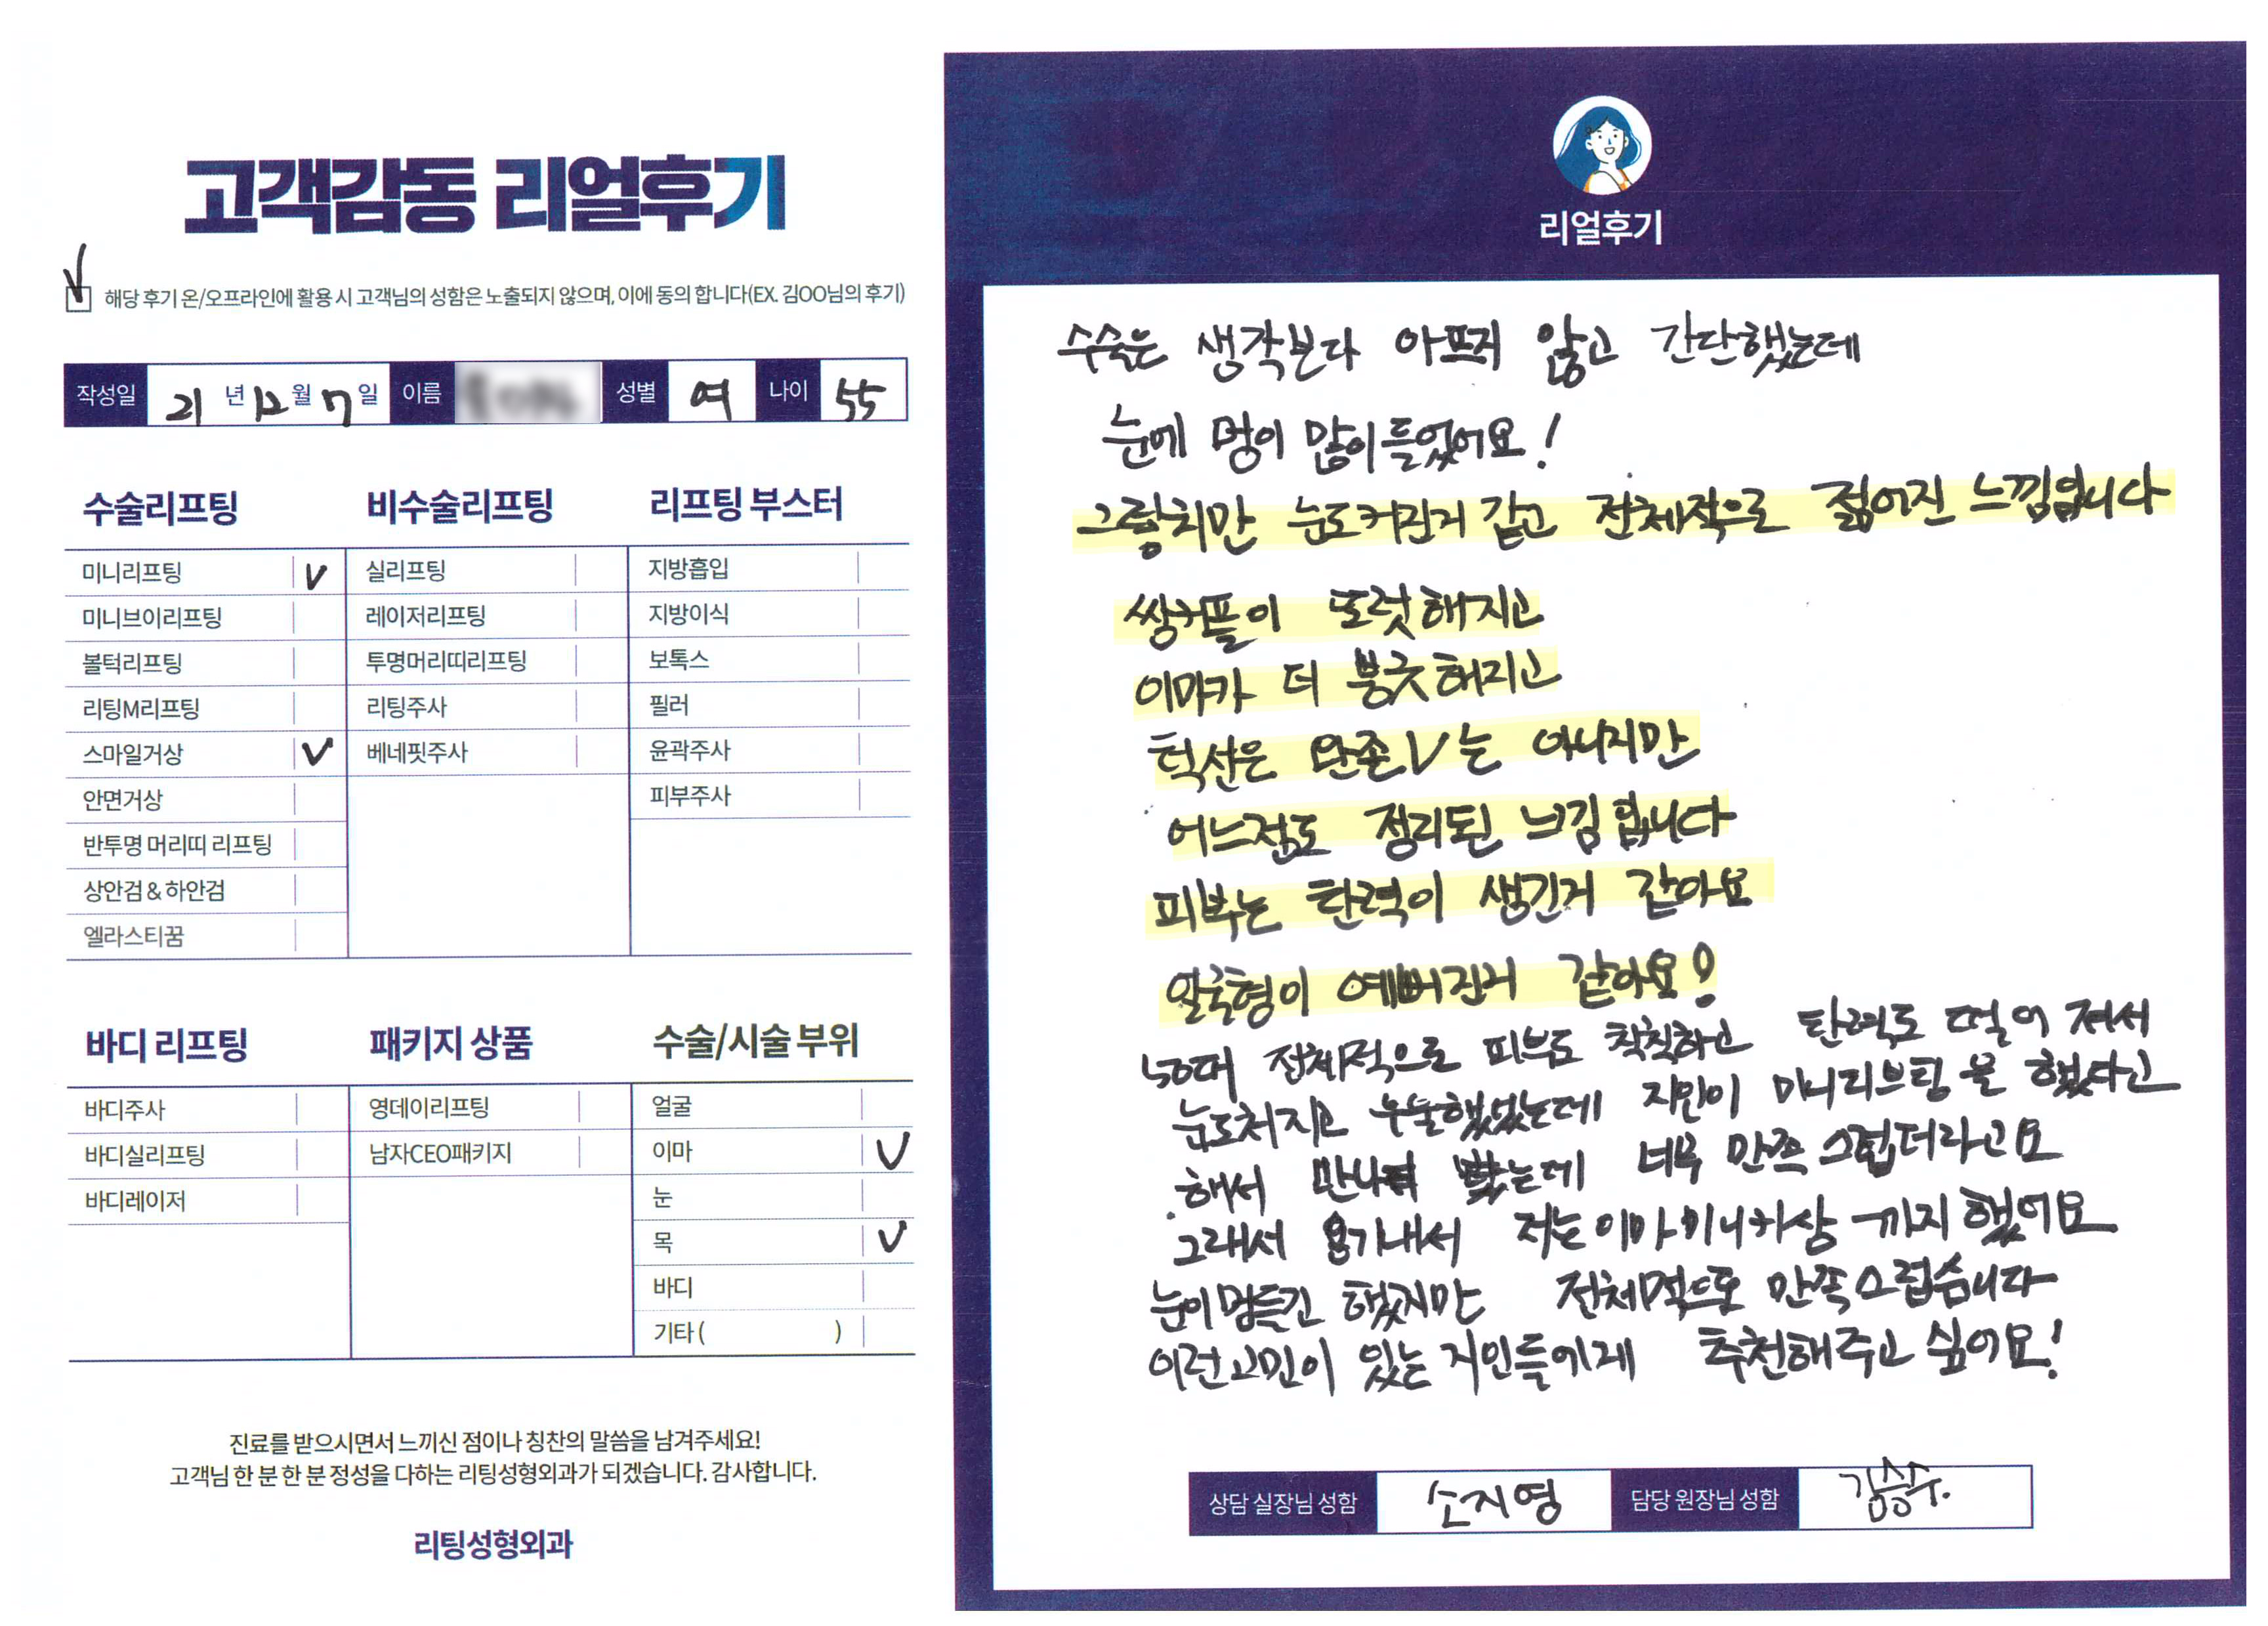 고객감동 리얼후기
해당 후기 온/오프라인에 활용 시 고객님의 성함은 노출되지 않으며, 이에 동의 합니다(EX. 김OO님의 후기)
작성일 21 년 12 월 7 일 이름 성별 여 나이 55
수술리프팅
미니리프팅 V
미니브이리프팅
볼턱리프팅
리팅M리프팅
스마일거상 V
안면거상
반투명 머리띠 리프팅
상안검 & 하안검
엘라스티꿈
비수술리프팅
실리프팅
레이저리프팅
투명머리띠리프팅
리팅주사
베네핏주사
리프팅 부스터
지방흡입
지방이식
보톡스
필러
윤곽주사
피부주사
바디 리프팅
바디주사
바디실리프팅
바디레이저
패키지 상품
영데이리프팅
남자CEO패키지
수술/시술 부위
얼굴
이마 V
눈
목 V
바디
기타 ( )
진료를 받으시면서 느끼신 점이나 칭찬의 말씀을 남겨주세요!
고객님 한 분 한 분 정성을 다하는 리팅성형외과가 되겠습니다. 감사합니다.
리팅성형외과
리얼후기
수술은 생각본다 아프지 않고 간단했는데
눈에 멍이 많이 들었어요!
그렇치만 눈도커진거 같고 전체적으로 젊어진 느낌입니다
쌍커플이 또렷해지고
이마가 더 봉긋해지고
턱선은 완존 V는 아니지만
어느점도 정리된 느낌 입니다
피부는 탄력이 생긴거 같아요
얼굴형이 예뻐진거 같아요!
50대 전체적으로 피부도 칙칙하고 탄력도 떨어 져서
눈도처지고 우울했었는데 지인이 미니리프팅 을 했다고
해서 만나 봤는데 너무 만족 스럽더라고요
그래서 용기내서 저는 이마 미니거상 까지 했어요
눈이멍들긴 했지만 전체적으로 만족스럽습니다
이런고민이 있는 지인들에게 추천해주고 싶어요!
상담 실장님 성함 손지영 담당 원장님 성함 김승수.